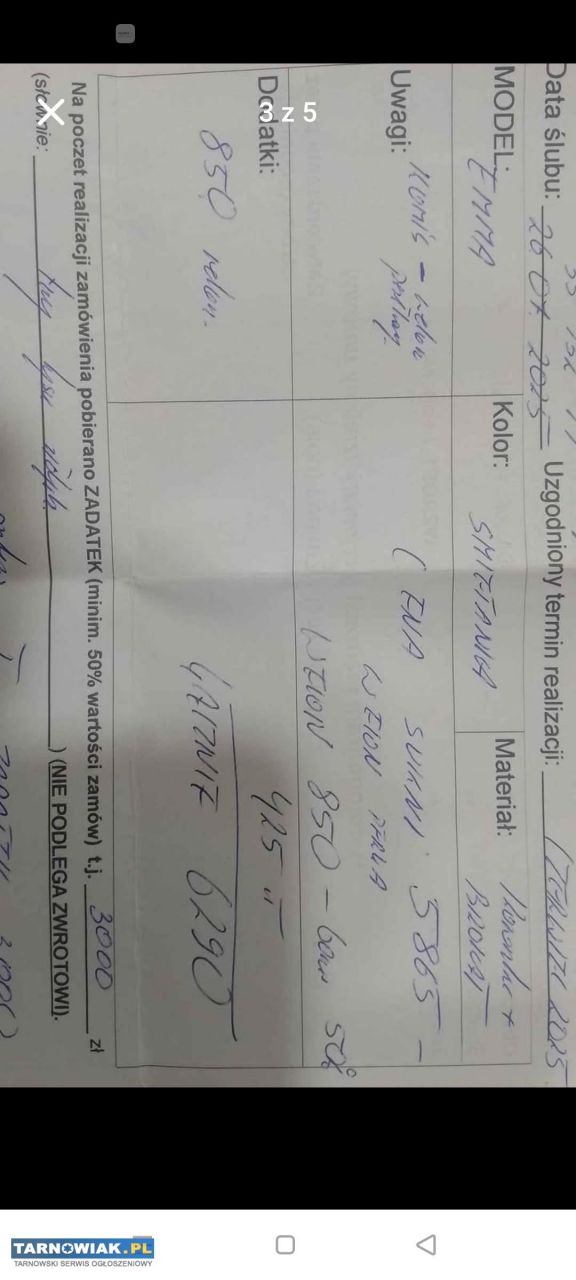 3 z 5
Data ślubu: 26 07. 2025 Uzgodniony termin realizacji: CZERWIEC 2025
MODEL: EMMA Kolor: ŚMIETANKA Materiał: Koronka + BROKAT
Uwagi: KOMIS - welon CENA SUKNI 5865 -
WELON PERŁA
WELON 850 - 50%
Dodatki: 425 =
850 welon. ŁĄCZNIE 6290
Na poczet realizacji zamówienia pobierano ZADATEK (minim. 50% wartości zamów) t.j. 3000 zł
(słownie: trzy tysiące złotych) (NIE PODLEGA ZWROTOWI).
3000
TARNOWIAK.PL
TARNOWSKI SERWIS OGŁOSZENIOWY